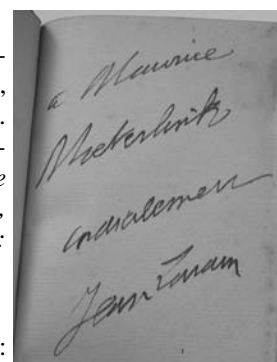 a Maurice
Maeterlinck
cordialement
Jean Lorrain